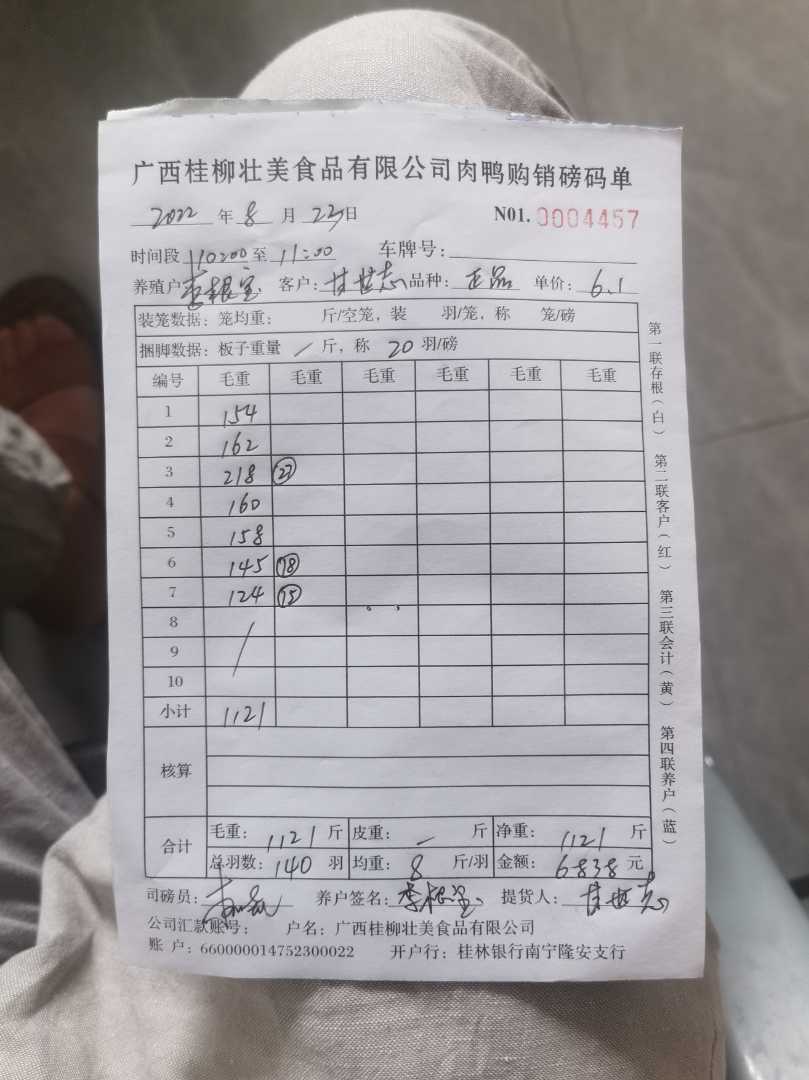 广西桂柳壮美食品有限公司肉鸭购销磅码单
2022 年 8 月 23日 N01. 0004457
时间段 10:00 至 11:00 车牌号:
养殖户 李根宝 客户: 甘世志 品种: 正品 单价: 6.1
装笼数据: 笼均重: 斤/空笼, 装 羽/笼, 称 笼/磅
捆脚数据: 板子重量 / 斤, 称 20 羽/磅
编号 毛重 毛重 毛重 毛重 毛重 毛重
1 154
2 162
3 218 27
4 160
5 158
6 145 18
7 124 15
8
9 /
10
小计 1121
核算
合计 毛重: 1121 斤 皮重: — 斤 净重: 1121 斤
总羽数: 140 羽 均重: 8 斤/羽 金额: 6838 元
司磅员: 养户签名: 李根宝 提货人: 甘世志
公司汇款账号: 户名: 广西桂柳壮美食品有限公司
账 户: 660000014752300022 开户行: 桂林银行南宁隆安支行
第一联存根(白) 第二联客户(红) 第三联会计(黄) 第四联养户(蓝)